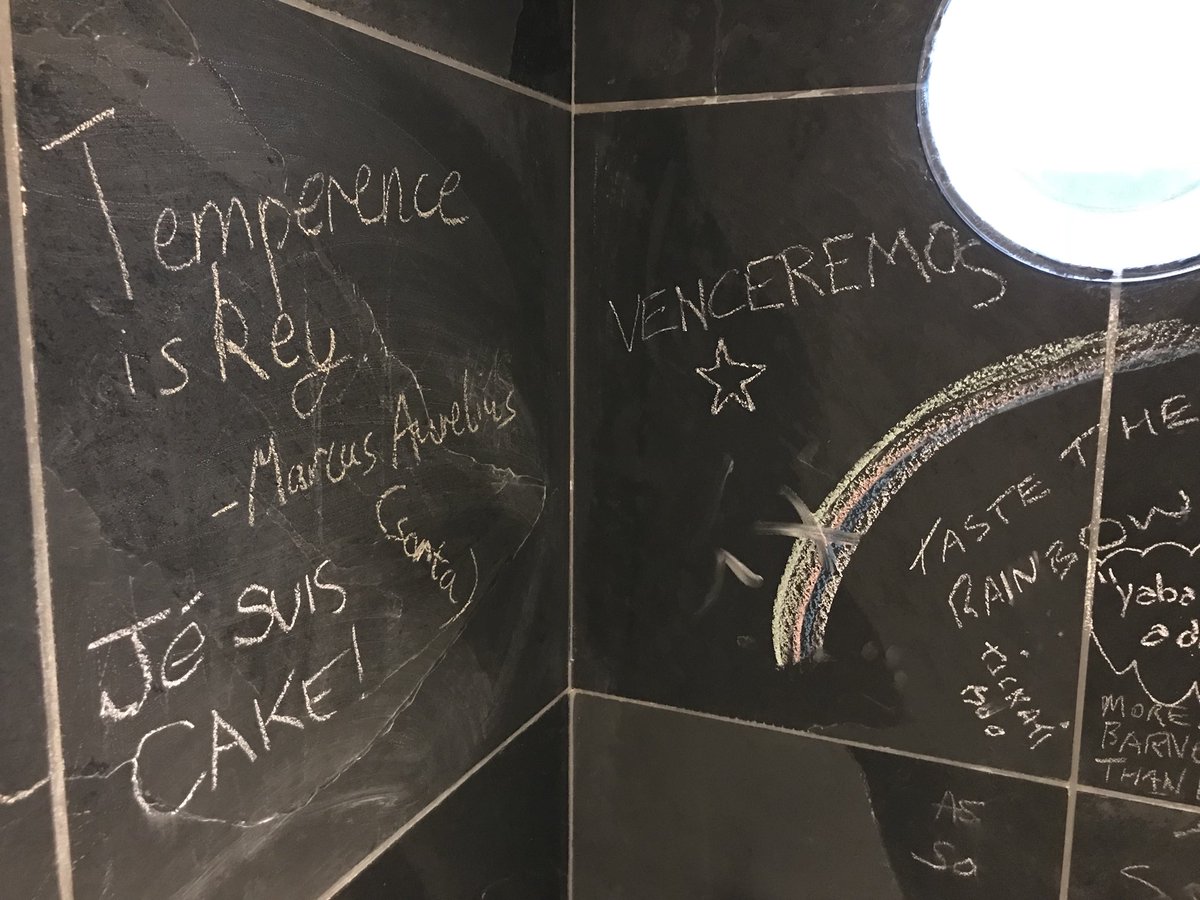 Temperence
is key
-Marcus Aurelius
(Santa)
Jë SUIS
CAKE!
VENCEREMOS
TASTE THE
RAINBOW
"yaba
MORE
THAN
AS
SO